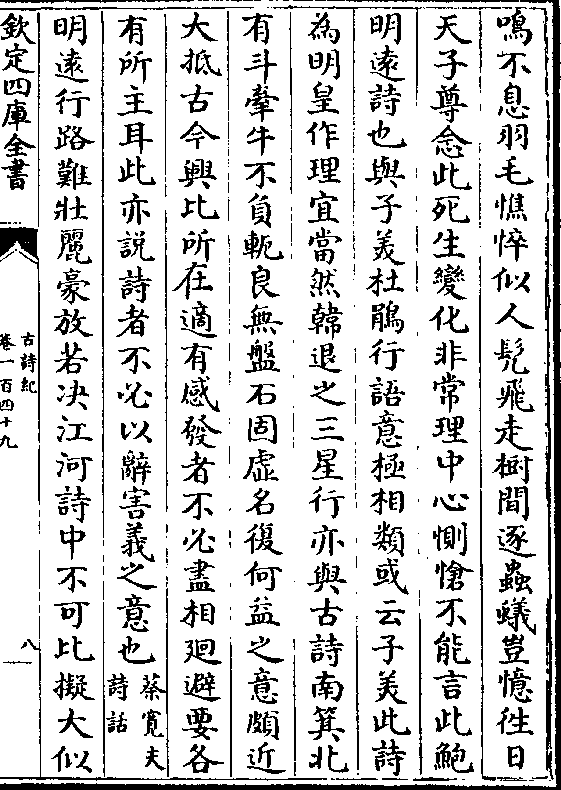 鳴不息羽毛憔悴似人髠飛走樹間逐蟲蟻豈憶徃日
天子尊念此死生變化非常理中心惻愴不能言此鮑
明遠詩也與子美杜鵑行語意極相類或云子美此詩
為明皇作理宜當然韓退之三星行亦與古詩南箕北
有斗牽牛不負軛良無盤石固虛名復何益之意頗近
大抵古今興比所在適有感發者不必盡相廻避要各
有所主耳此亦説詩者不必以辭害義之意也蔡寛夫詩話
明逺行路難壯麗豪放若决江河詩中不可比擬大似
欽定四庫全書
古詩紀
卷一百四十九
八